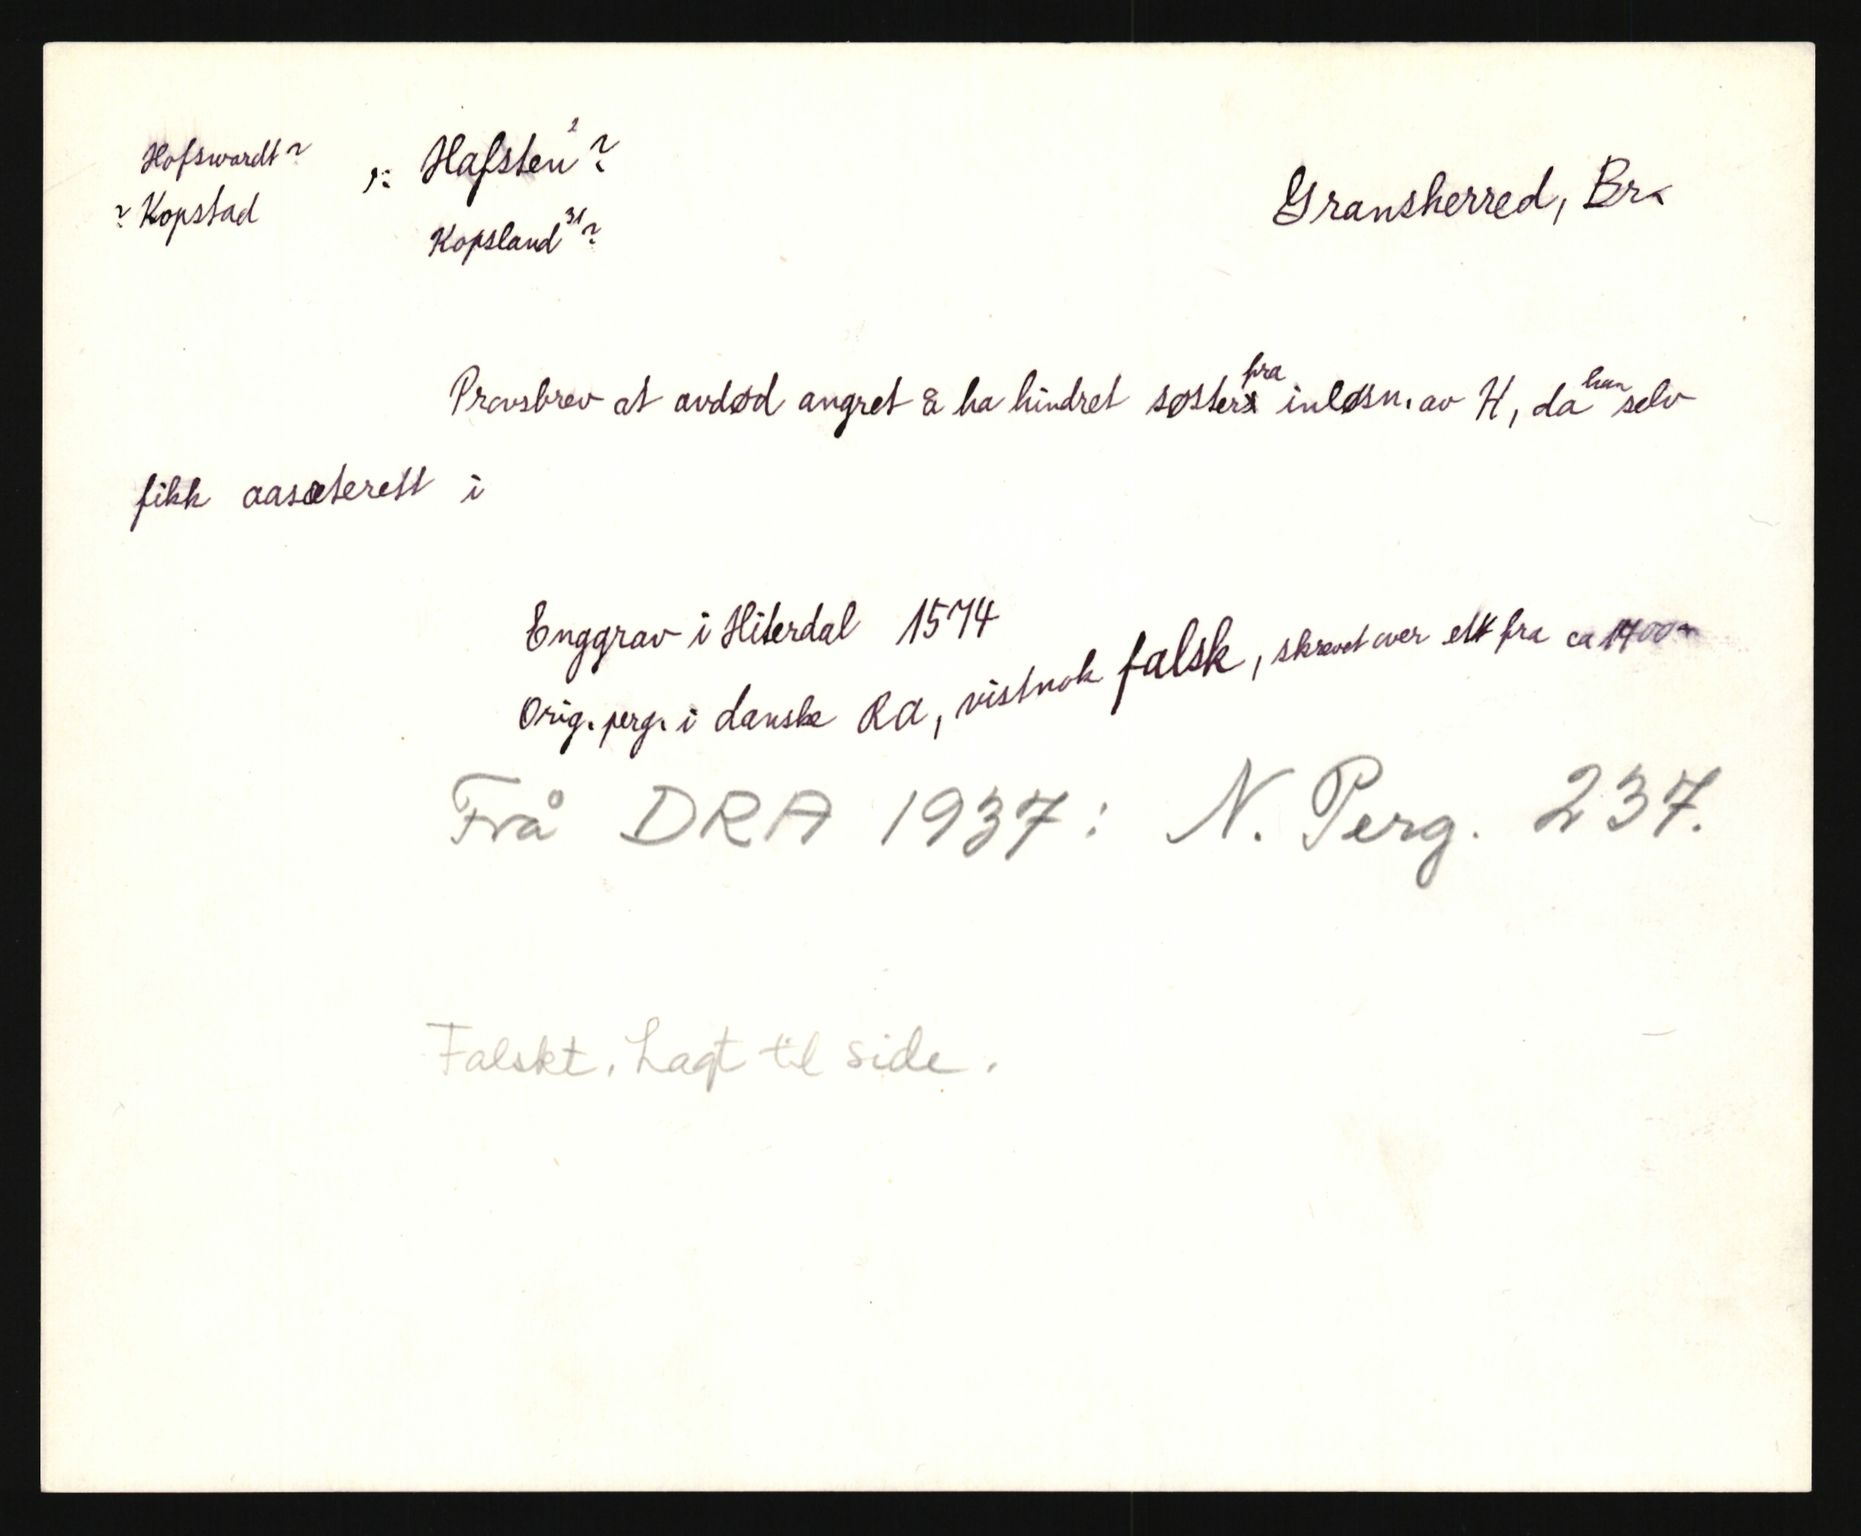 Hofswardt ? ɔ: Hafsten 2 ? Gransherred, Br.
? Kopstad Kopsland 31 ?
Provsbrev at avdød angret & ha hindret søster fra inløsn. av H, da han selv
fikk aasæterett i
Enggrav i Hiterdal 1574
Orig. perg. i danske RA, vistnok falsk, skrevet over ett fra ca 1400
Frå DRA 1937: N. Perg. 237.
Falskt. Lagt til side.